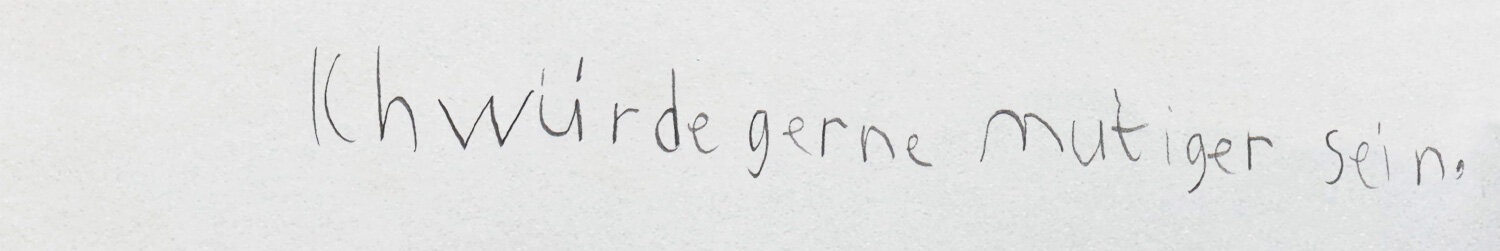 Ich würde gerne mutiger sein.